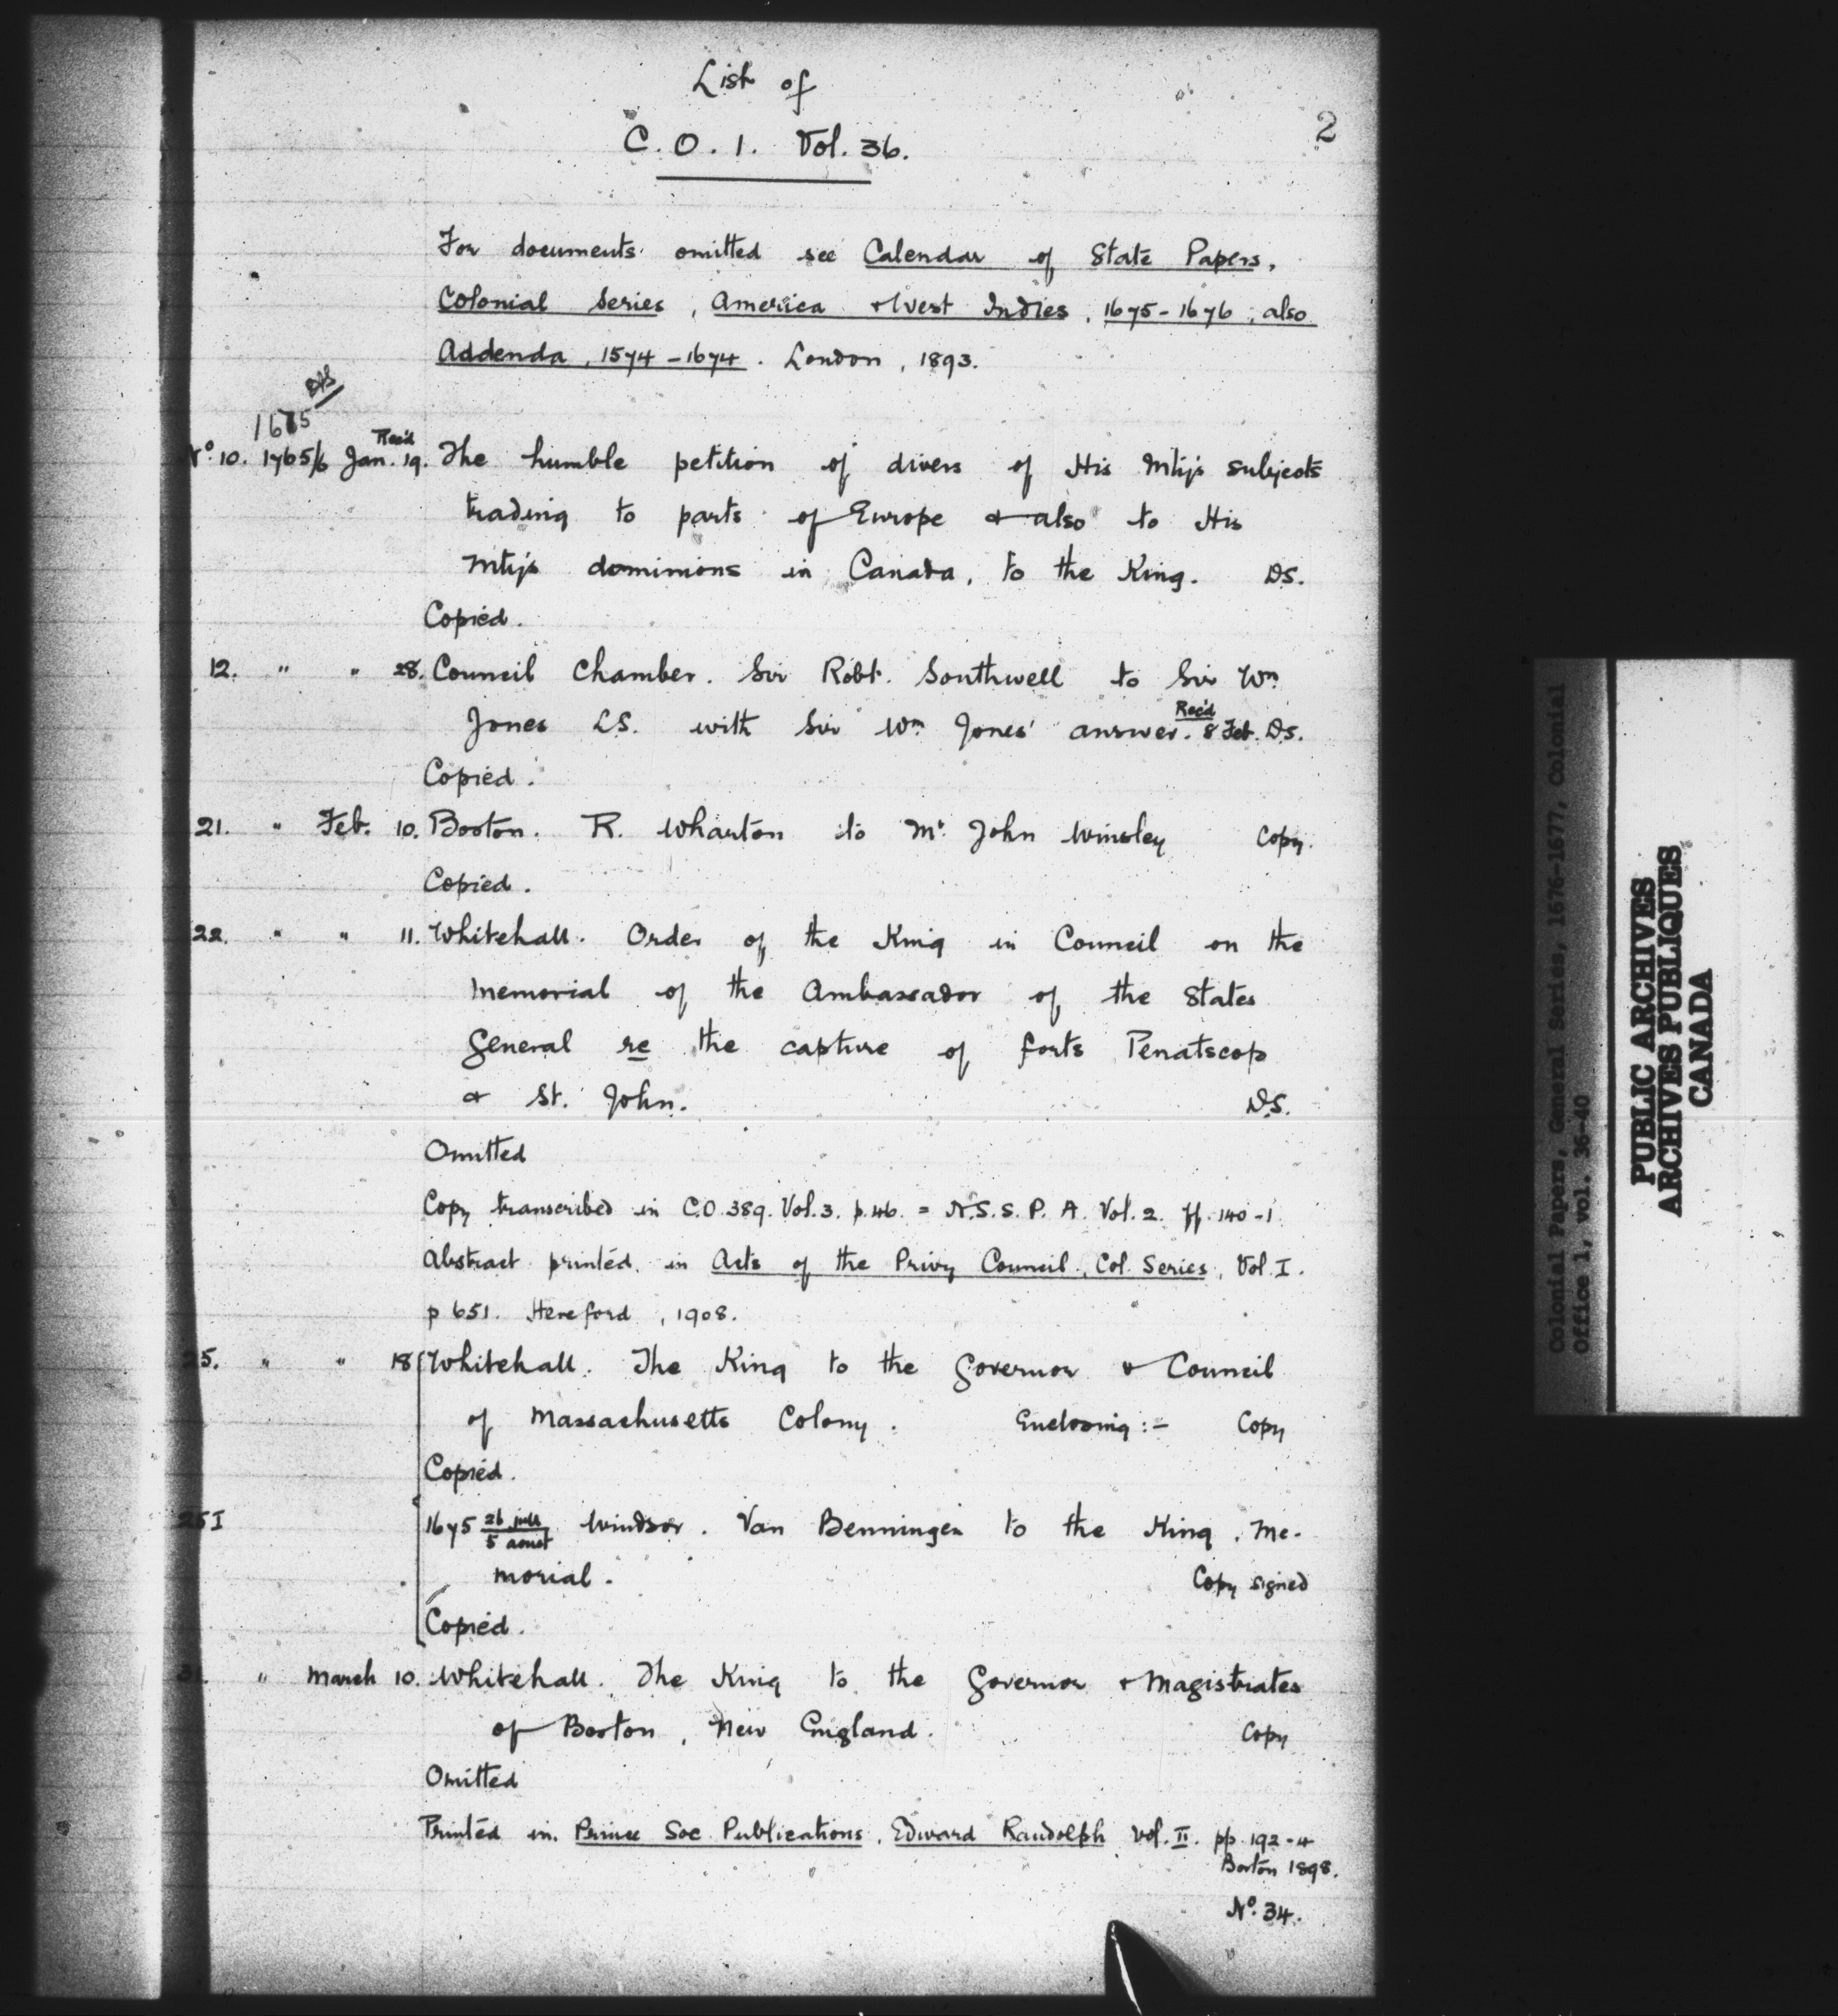 List of
2
C. O. 1. Vol. 36.
For documents omitted see Calendar of State Papers,
Colonial Series, America & West Indies, 1675-1676, also
Addenda, 1574-1674. London, 1893.
1675
Rec'd
No. 10. 1765/6 Jan. 19. The humble petition of divers of His Mtijs subjects
trading to parts of Europe & also to His
Mtijs dominions in Canada, to the King. DS.
Copied.
12. " " 28. Council Chamber. Sir Robt. Southwell to Sir Wm
Jones LS. with Sir Wm Jones' answer. Rec'd 8 Feb. DS.
Copied.
21. " Feb. 10. Boston. R. Wharton to Mr. John Winsley Copy.
Copied.
22. " " 11. Whitehall. Order of the King in Council on the
Memorial of the Ambassador of the States
General re the capture of forts Penatscop
& St. John. D.S.
Omitted
Copy transcribed in C.O. 389. Vol. 3. p. 46. = N.S. S. P. A. Vol. 2. ff. 140-1.
Abstract printed in Acts of the Privy Council, Col. Series, Vol. I.
p 651. Hereford, 1908.
25. " " 18 Whitehall. The King to the Governor & Council
of Massachusetts Colony. Enclosing:- Copy
Copied.
25 I 1675 26 juill / 5 aoust Windsor. Van Benningen to the King. Me-
morial. Copy signed
Copied.
" March 10. Whitehall. The King to the Governor & Magistrates
of Boston, New England. Copy
Omitted
Printed in Prince Soc Publications, Edward Randolph Vol. II. pp. 192-4
Boston 1898.
No. 34.
Colonial Papers, General Series, 1676-1677, Colonial
Office 1, vol. 36-40
PUBLIC ARCHIVES
ARCHIVES PUBLIQUES
CANADA